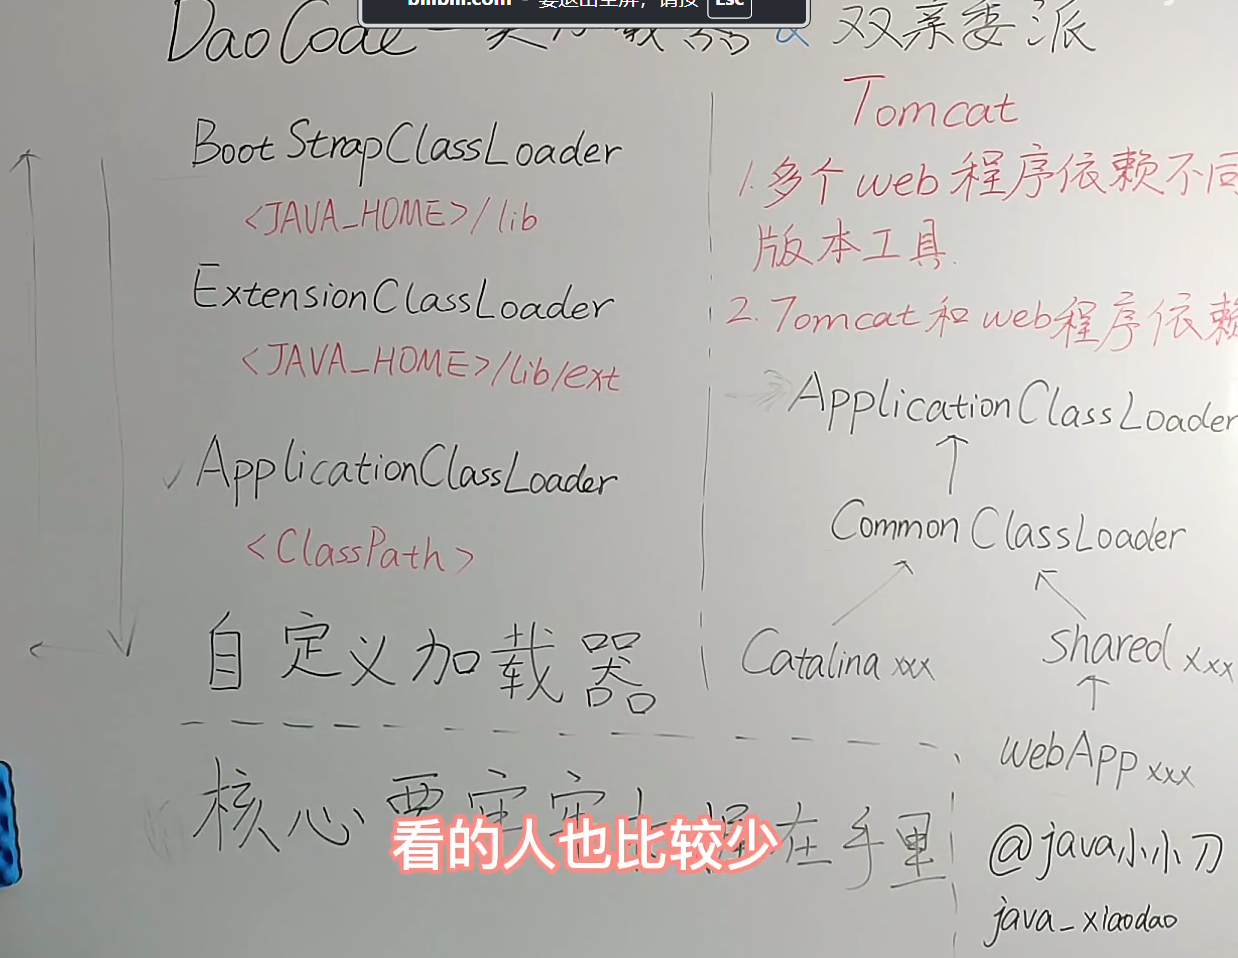 DaoCode 双亲委派
BootStrapClassLoader
<JAVA_HOME>/lib
ExtensionClassLoader
<JAVA_HOME>/lib/ext
ApplicationClassLoader
<ClassPath>
自定义加载器
Tomcat
1.多个web程序依赖不同
版本工具.
2.Tomcat和web程序依赖
ApplicationClassLoader
Common ClassLoader
Catalina xxx
Shared xxx
webApp xxx
核心要牢牢 握在手里
看的人也比较少
@java小小刀
java_xiaodao